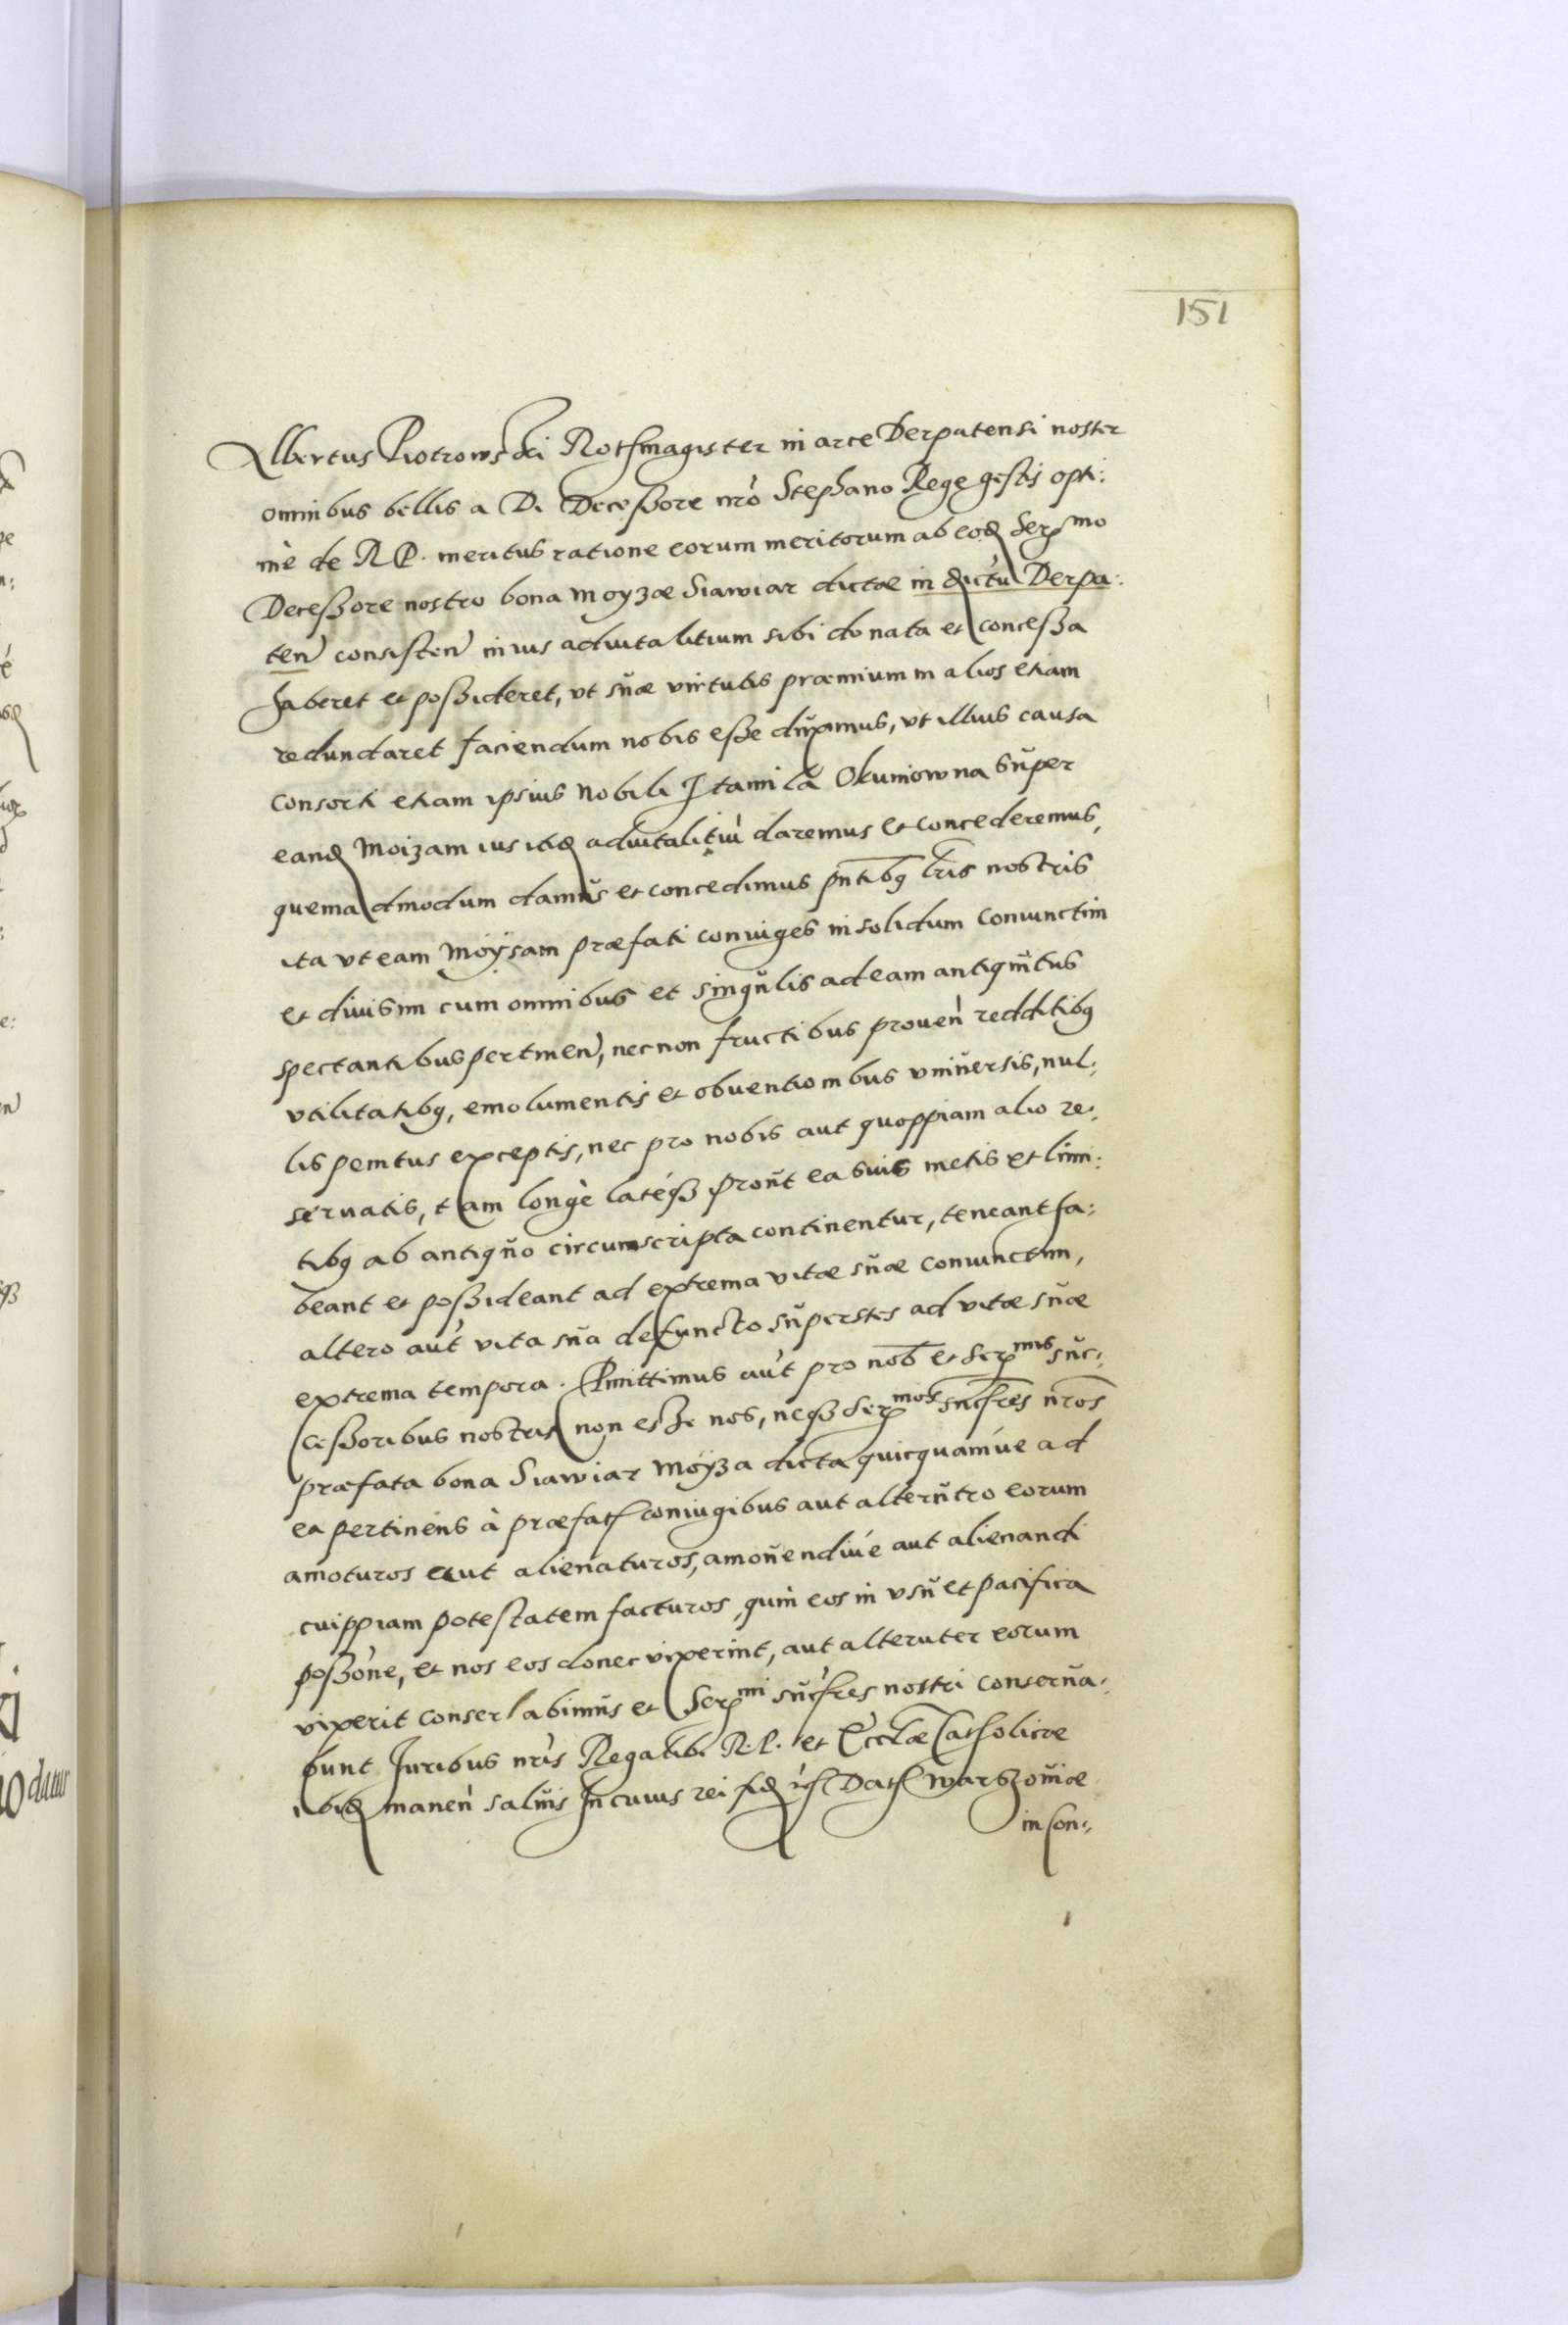 151
Albertus Piotrowski Rothmagister in arce Derpatensi noster
omnibus bellis a D. Decessore nr̃o Stephano Rege gestis opti:
mè de R P. meritus ratione eorum meritorum ab eod Ser mo
Decessore nostro bona Moyzæ Siawiar dictæ in dictũ Derpa:
ten consisten in ius aduitalitium sibi donata et concessa
haberet et possideret, vt suæ virtutis præmium in alios etiam
redundaret faciendum nobis esse duximus, vt illius causa
consorti etiam ipsius Nobili Okuniowna super
eand Moizam ius itid aduitalitiũ daremus et concederemus,
quemadmodum damus et concedimus pñtibq lr̃is nostris
ita vt eam Moÿsam præfati coniuges in solidum coniunctim
et diuisim cum omnibus et singulis ad eam antiquitus
spectantibus pertinen, nec non fructibus prouen redditibq
vtilitatibq, emolumentis et obuentionibus vniuersis, nul:
lis penitus exceptis, nec pro nobis aut quoppiam alio re:
seruatis, tam longè latéqз prout ea suis metis et limi:
tibq ab antiquo circumscripta continentur, teneant ha:
beant et possideant ad extrema vitæ suæ coniunctim,
altero aut vita sua defuncto superstes ad vitæ suæ
extrema tempora. Pmittimus aut pro nob et Ser mis suc:
cessoribus nostris non esse nos, neqз Ser mos sucr̃es nr̃os
præfata bona Siawiar Moÿza dicta quicquamúe ad
ea pertinens à præfat coniugibus aut alterutro eorum
amoturos aut alienaturos, amouendiúe aut alienandi
cuippiam potestatem facturos, quin eos in vsu et pacifica
possone, et nos eos donec vixerint, aut alteruter eorum
vixerit conserlabimus et Ser mi sucr̃es nostri conserua:
bunt Iuribus nr̃is Regalib. R. P. et Ecclæ Catholicæ
ibid manen saluis In cuius rei fid Dat Warszouiæ
in con: